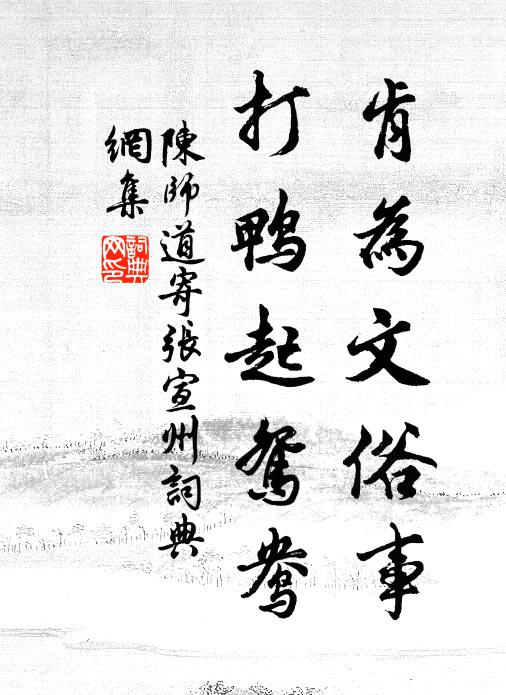 肯為文俗事
打鴨起鴛鴦
陳師道寄張宣州詞典
網集
詞典網印